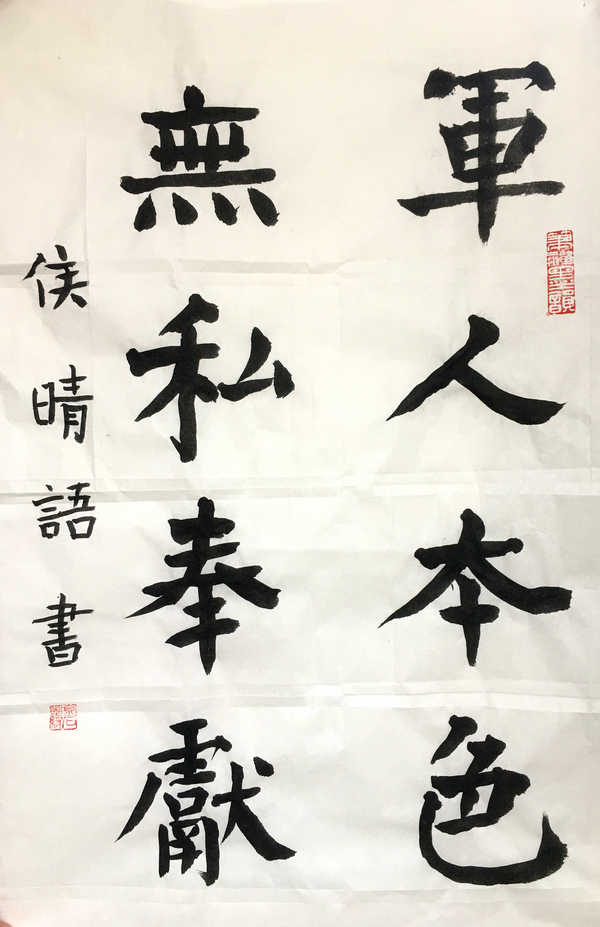 軍人本色
無私奉獻
侯晴語書